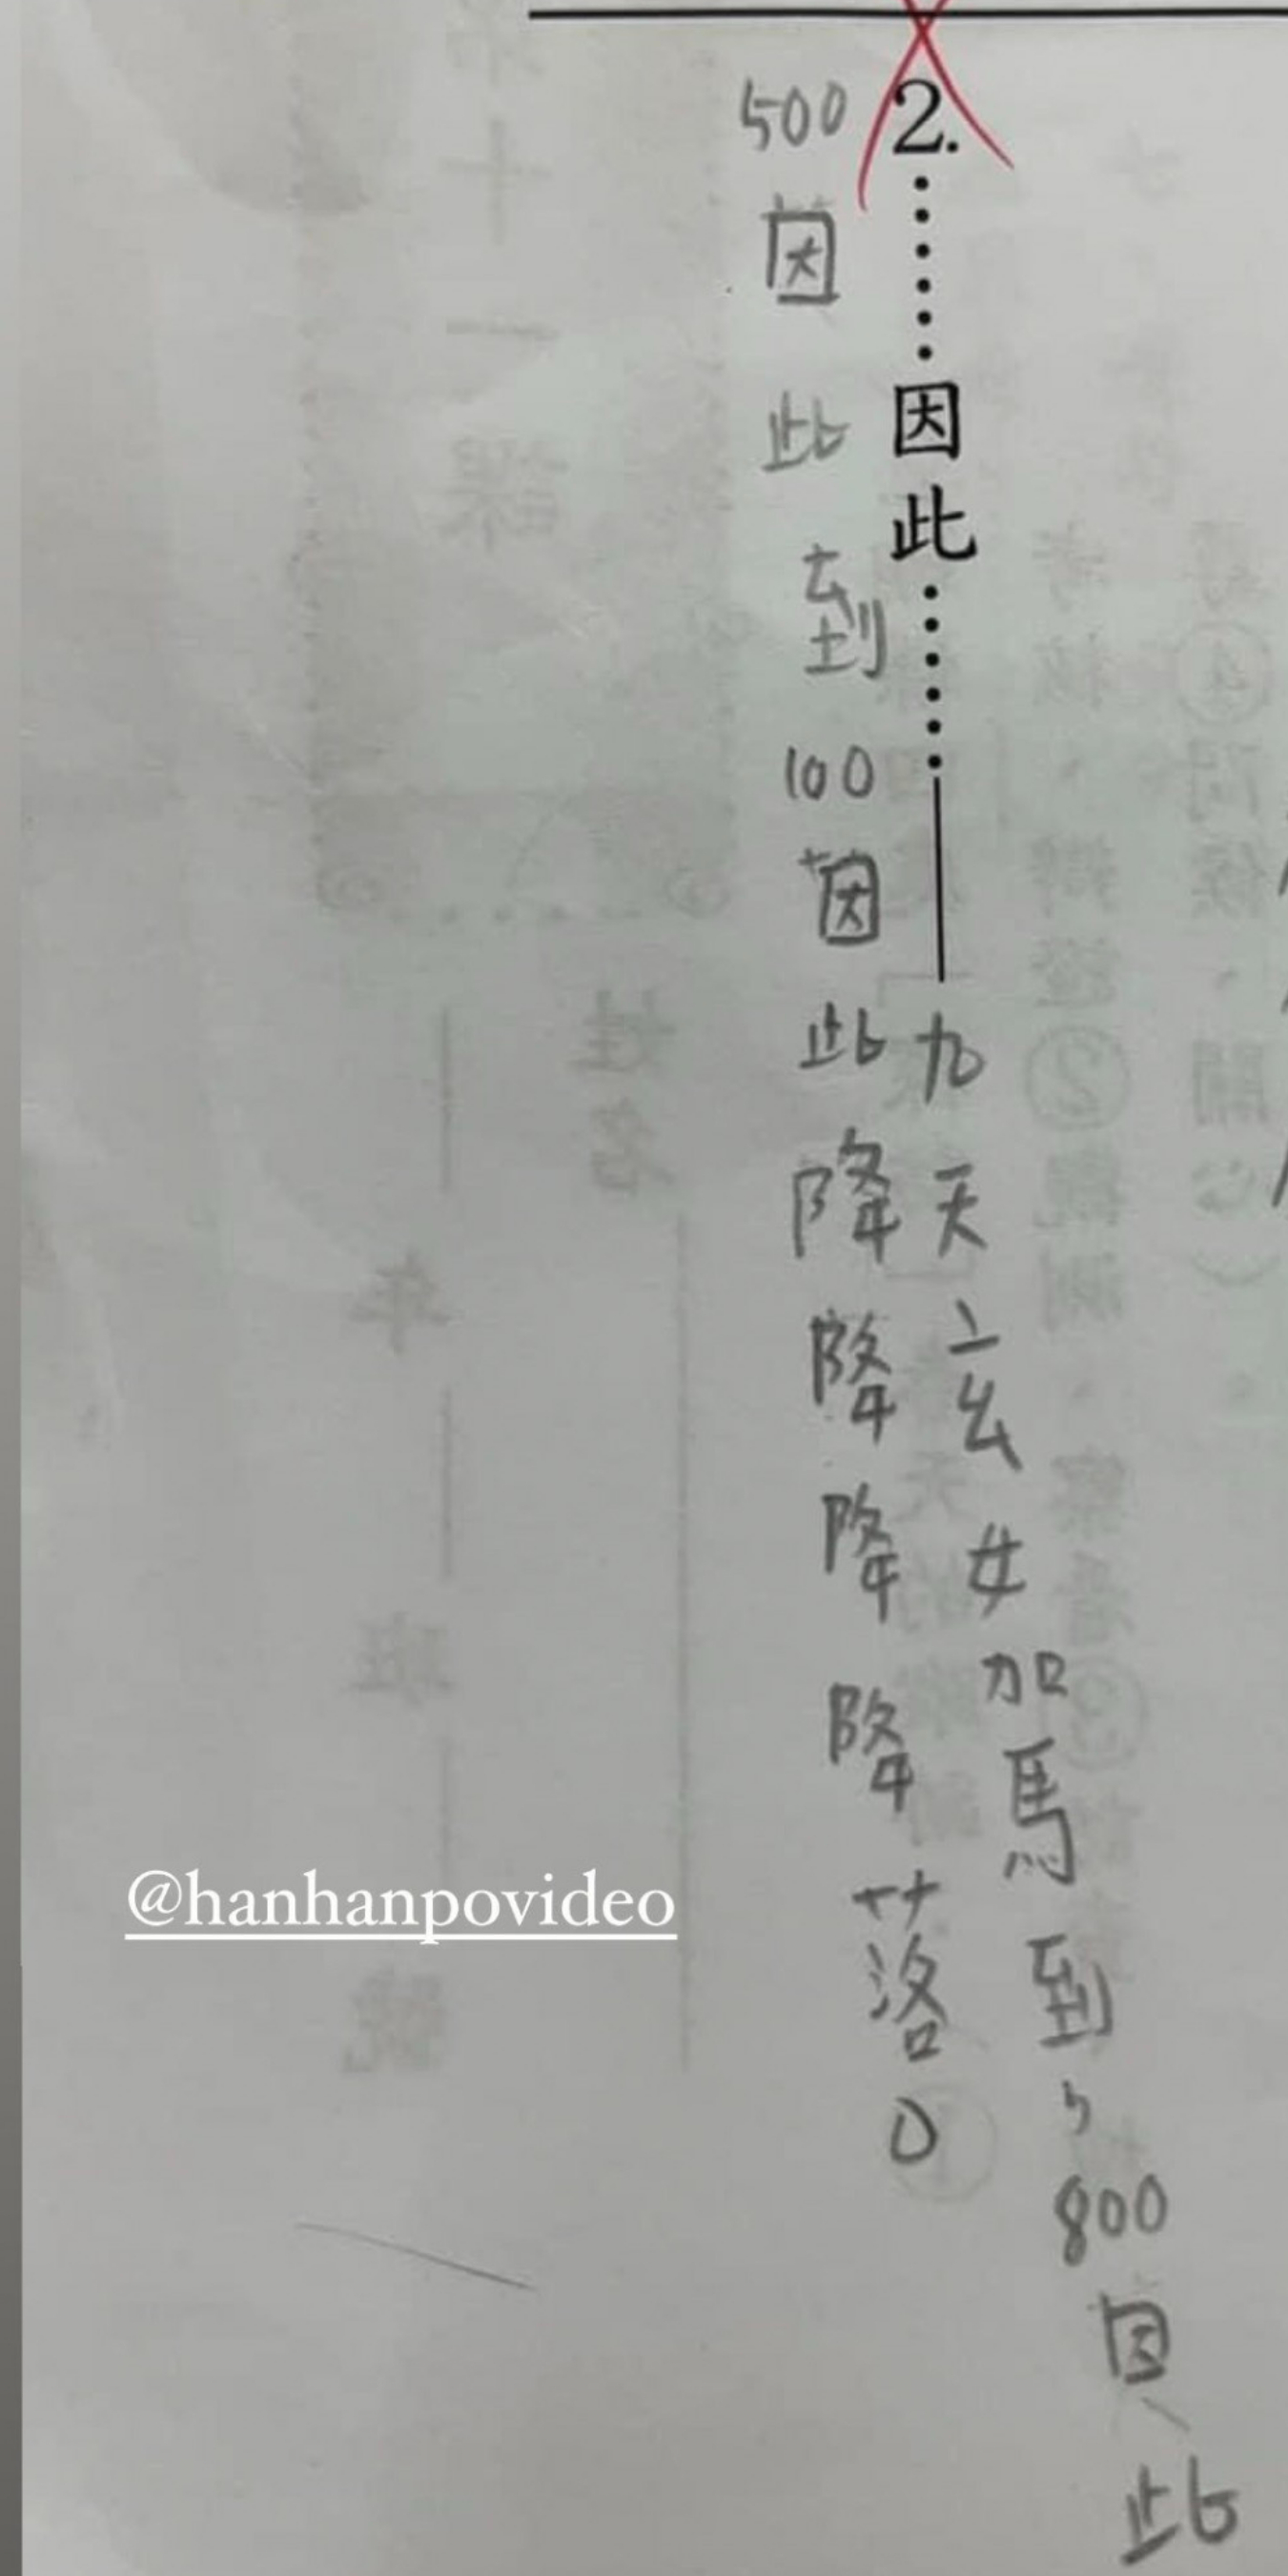 2.……因此……——九天玄女加馬到800因此
500因此到100因此降降降降落0
@hanhanpovideo